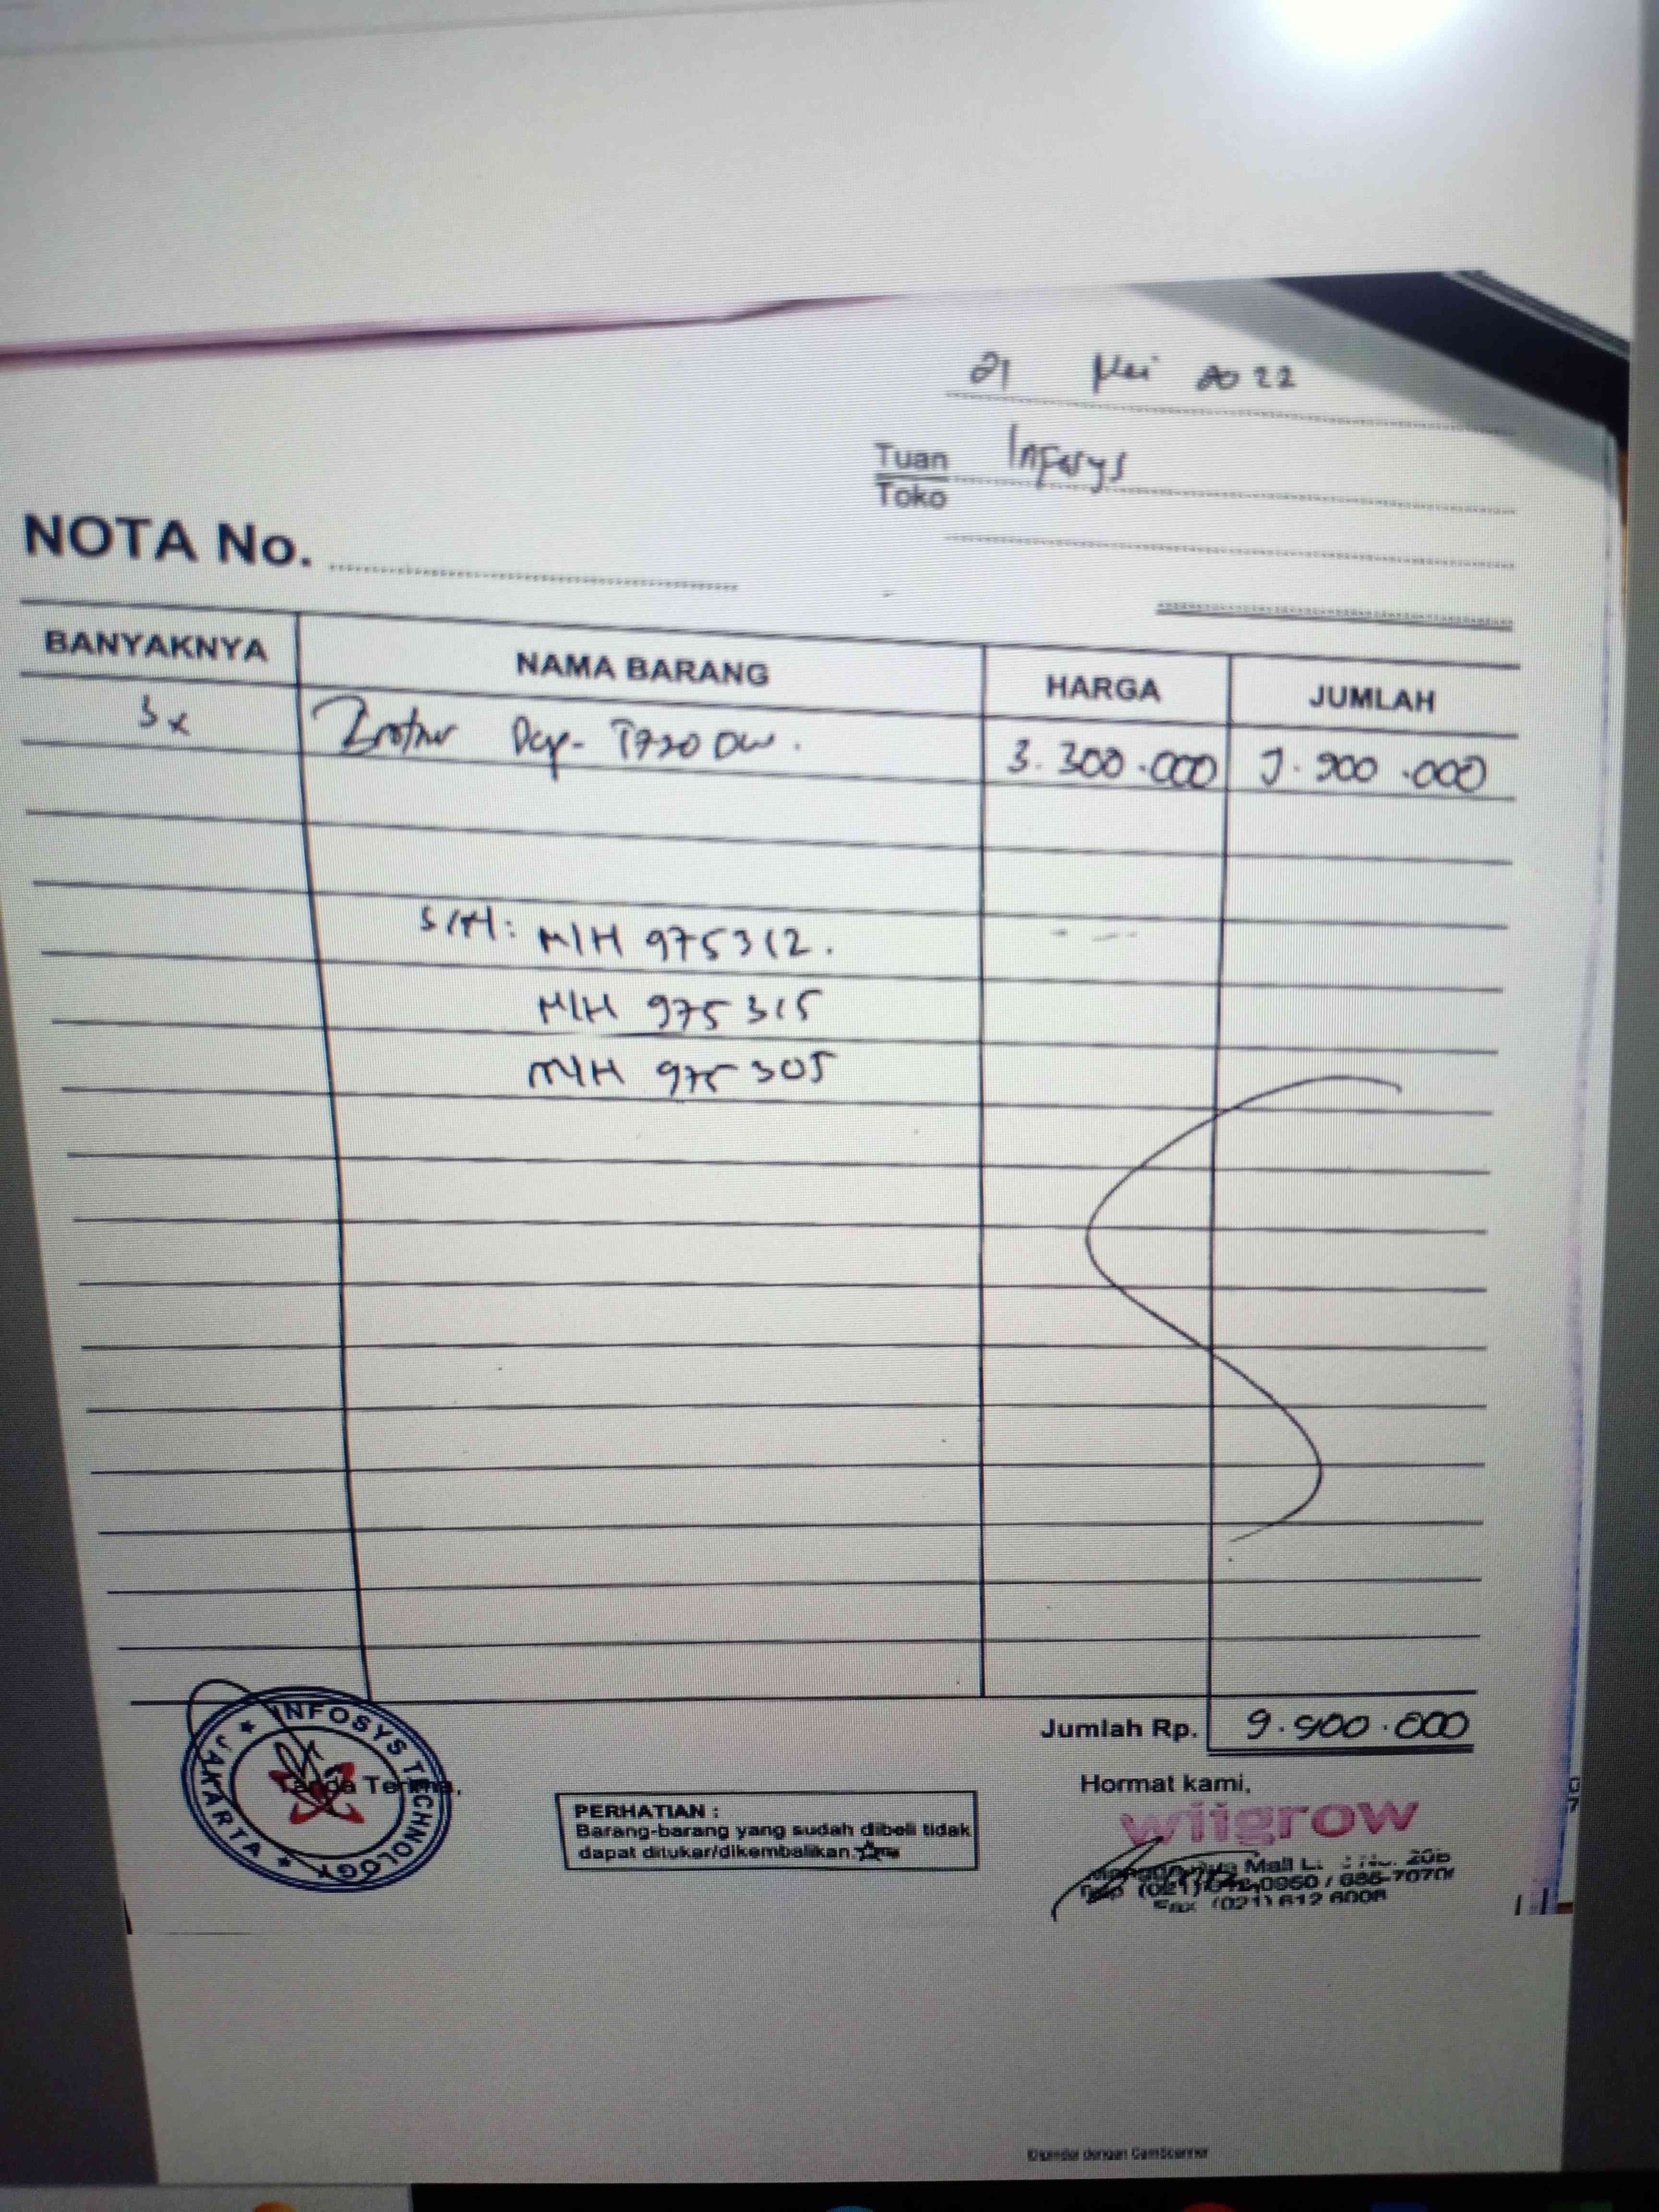 21 Mei 2022
Tuan Infosys
Toko
NOTA No.
BANYAKNYA NAMA BARANG HARGA JUMLAH
3x Brother Dcp-T720DW. 3.300.000 9.900.000
S/N: M/H 975312.
M/H 975315
M/H 975305
Jumlah Rp. 9.900.000
INFOSYS TECHNOLOGY
JAKARTA
Tanda Terima,
PERHATIAN :
Barang-barang yang sudah dibeli tidak
dapat ditukar/dikembalikan.
Hormat kami,
wiigrow
Mall
Fax (021) 612 6006